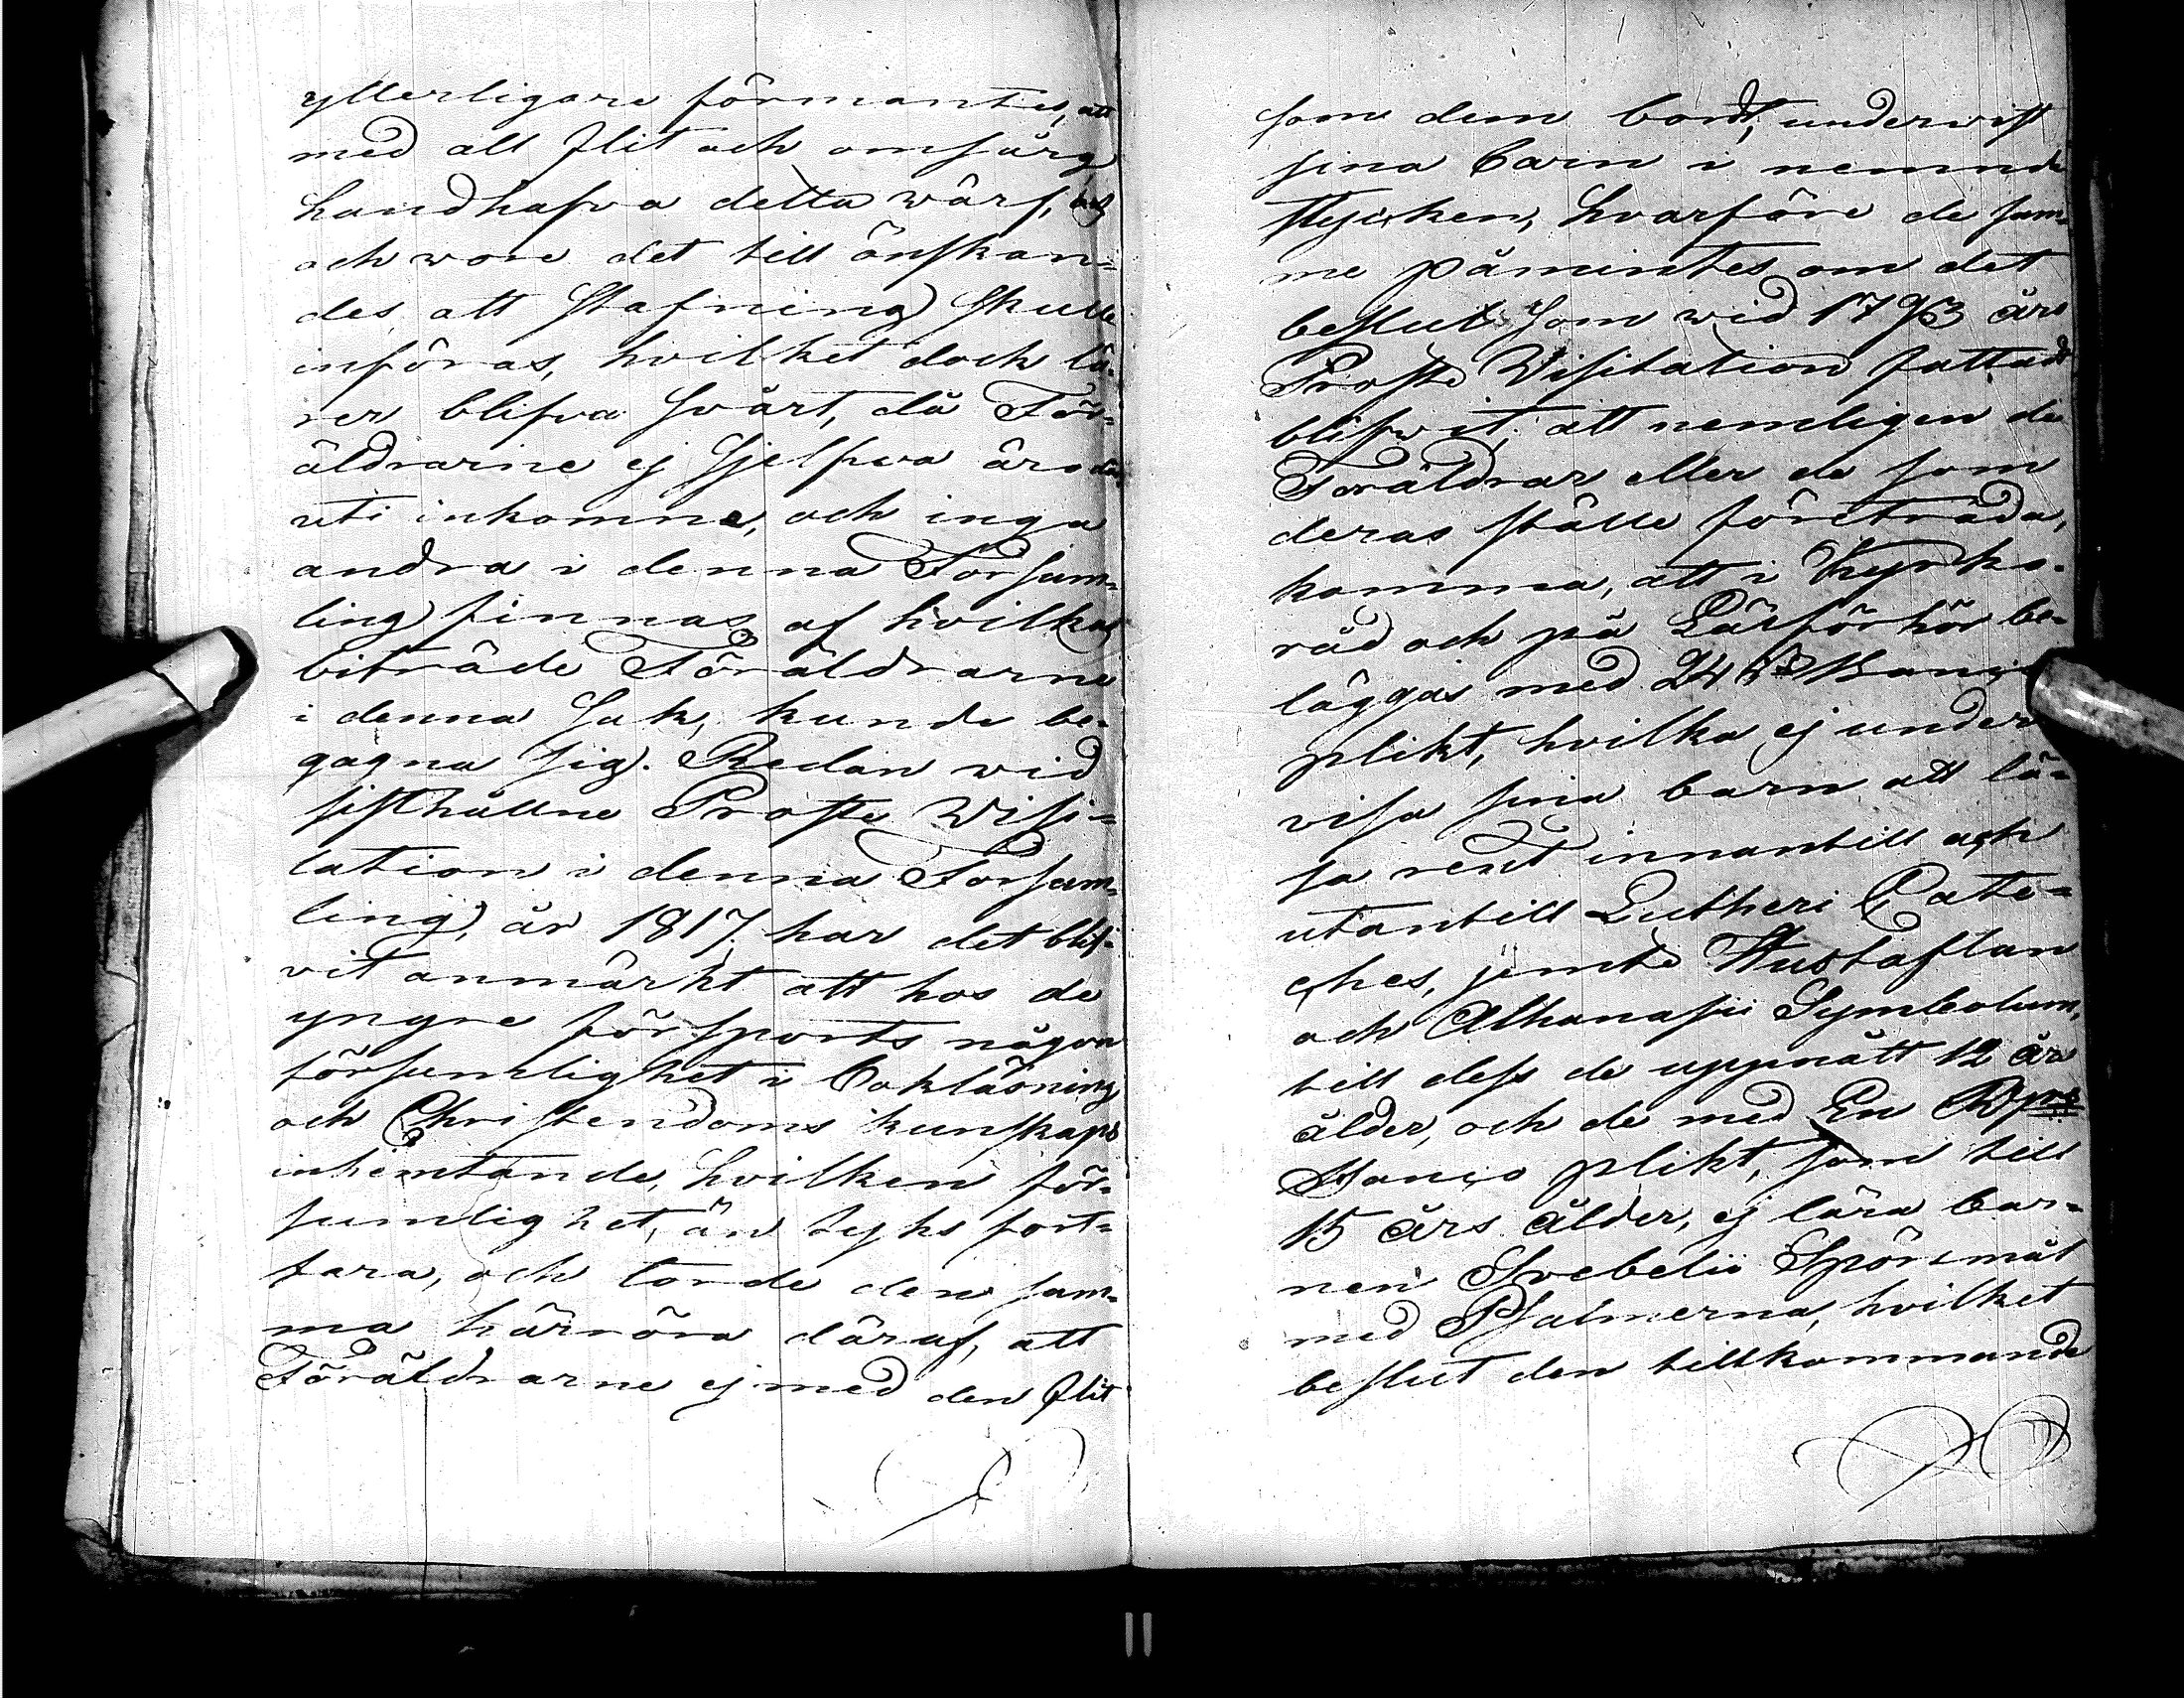 ytterligare förmantes, att
med all flit och omsårg
handhafva detta wärf,
och wore det till önskan-
des att Stafning skulle
införas, hvilket dock lä-
rer blifva svårt, då För-
äldrarne ej sjelfva äro där
uti inkomne, och inga
andra i denna Försam-
ling finnas af hvilkas
biträde Föräldrarne
i denna Sak, kunde be-
gagna sig. Redan wid
sisthållne Proste Wisi-
tation i denna Försam-
ling, år 1817. har det blif-
vit anmärkt att hos de
yngre försports någon
försumlighet i Bokläsning
och Christendoms kunskaps
inhemtande, hvilken för-
sumlighet, än tyks fort-
fara, och torde den sam-
ma härröra däraf, att
Föräldrarne ej med den flit
som dem bordt, underwist
sina Barn i nemnde
stycken, hvarföre de sam-
me påmintes om det
beslut som wid 1793 års
Proste Visitation fattadt
blifwit, att nemligen de
Föräldrar eller de som
deras ställe företräda,
komma, att i Kyrko-
råd och på Läsförhör be-
läggas med 24 ß Banco
plikt, hvilka ej under
visa sina barn att lä-
sa rent innantill och
utantill Lutheri Cate-
ches, jemte Hustaflan
och Athanasii Symbolum,
till dess de uppnått 12 års
ålder, och de med En Rdr
Banco plikt, som till
15 års ålder, ej lära bar-
nen Svebelii Spörsmål
med Psalmerna, hvilket
beslut den tillkommande
11